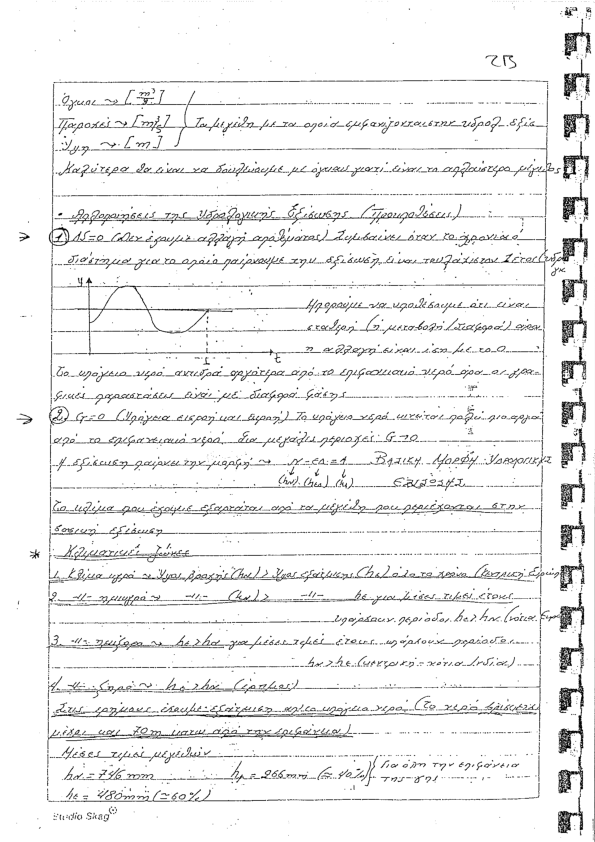 2B
Όγκοι ~> [m³/y]
Παροχές ~> [m³/s] Τα μεγέθη με τα οποία εμφανίζονται στην υδρολ. εξίσ.
Ύψη ~> [m]
Καλύτερα θα είναι να δουλεύουμε με όγκους γιατί είναι το απλούστερο μέγεθος
• Απλοποιήσεις της Υδρολογικής Εξίσωσης (Προϋποθέσεις)
1) ΔS=0 (Δεν έχουμε αλλαγή αποθέματος) Συμβαίνει όταν το χρονικό
διάστημα για το οποίο παίρνουμε την εξίσωση είναι τουλάχιστον 1 έτος
y
Μπορούμε να υποθέσουμε ότι είναι
σταθερή (η μεταβολή/διαφορά) άρα
η αλλαγή είναι ίση με το 0.
t
Το υπόγειο νερό αντιδρά αργότερα από το επιφανειακό νερό άρα οι γρα-
φικές παραστάσεις είναι με διαφορά φάσης
2) G=0 (Υπόγεια εισροή και εκροή) Το υπόγειο νερό κινείται πολύ πιο αργά
από το επιφανειακό νερό. Για μεγάλες περιοχές G→0
Η εξίσωση παίρνει την μορφή ~> N-ED=A ΒΑΣΙΚΗ ΜΟΡΦΗ ΥΔΡΟΛΟΓΙΚΗΣ
(hN) (hED) (hA) ΕΞΙΣΩΣΗΣ
Το κλίμα που έχουμε εξαρτάται από τα μεγέθη που περιέχονται στην
βασική εξίσωση
* Κλιματικές Ζώνες
1. Κλίμα υγρό ~ Ύψος βροχής (hN) > Ύψος εξάτμισης (hE) όλο το χρόνο (Κεντρική Ευρώπη)
2. -||- ημίυγρο ~ -||- (hN) > -||- hE για μέσες τιμές έτους
υπάρχουν περίοδοι hE > hN (νότια Ευρ
3. -||- ημίξηρο ~ hE > hN για μέσες τιμές έτους υπάρχουν περίοδοι
hN > hE (κεντρική - νότια Ινδία)
4. -||- ξηρό ~ hE > hN (έρημος)
Στις ερήμους έχουμε εξάτμιση από το υπόγειο νερό. (Το νερό βρίσκεται
μέχρι και 70m κάτω από την επιφάνεια)
Μέσες τιμές μεγεθών
hN = 746 mm hA = 266mm (≈ 40%) Για όλη την επιφάνεια
της γης
hE = 480mm (≈60%)
Studio Skag